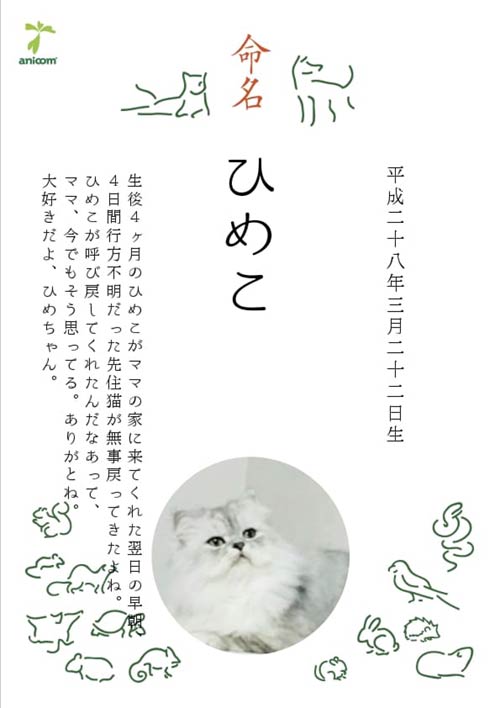 anicom
命名
平成二十八年三月二十二日生
ひめこ
生後４ヶ月のひめこがママの家に来てくれた翌日の早朝
４日間行方不明だった先住猫が無事戻ってきたよね。
ひめこが呼び戻してくれたんだなあって、
ママ、今でもそう思ってる。ありがとね。
大好きだよ、ひめちゃん。